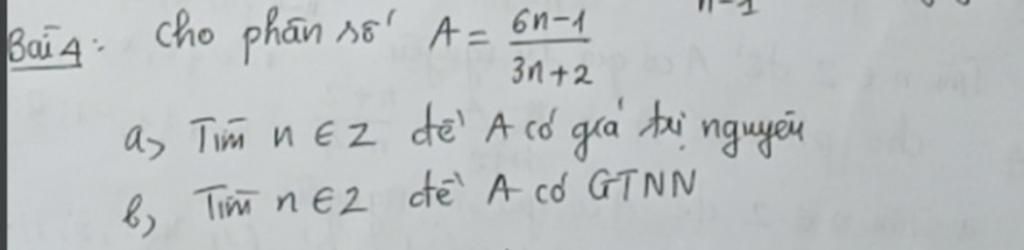 n-1
Bài 4: Cho phân số A = 6n-1 / 3n+2
a, Tìm n ∈ Z để A có giá trị nguyên
b, Tìm n ∈ Z để A có GTNN